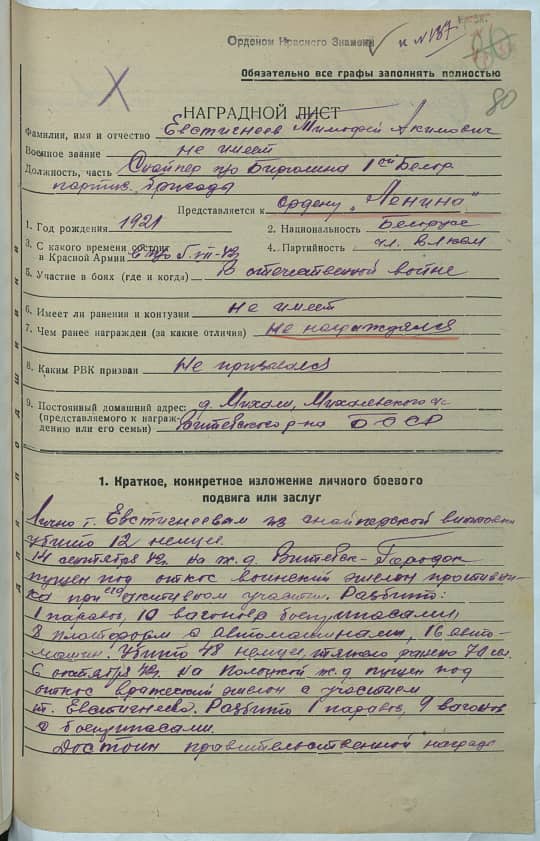 Орденом Красного Знамени
к №187
Обязательно все графы заполнять полностью
80
НАГРАДНОЙ ЛИСТ
Фамилия, имя и отчество Евстигнеев Тимофей Акимович
Военное звание не имеет
Должность, часть Снайпер п/о Бирюлина 1ой Белор
партиз. бригады
Представляется к Ордену „Ленина"
1. Год рождения 1921 2. Национальность Белорус
3. С какого времени состоит
в Красной Армии В п/о 4. Партийность чл. ВЛКСМ
5. Участие в боях (где и когда) В отечественной войне
6. Имеет ли ранения и контузии не имеет
7. Чем ранее награжден (за какие отличия) Не награждался
8. Каким РВК призван Не призывался
9. Постоянный домашний адрес: д. Михали, Михалевского с/с
(представляемого к награж-
дению или его семьи) Витебского р-на БССР
1. Краткое, конкретное изложение личного боевого
подвига или заслуг
Лично т. Евстигнеевым из снайперской винтовки
убито 12 немцев.
14 сентября 42г. на ж.д. Витебск-Городок
пущен под откос воинский эшелон противни-
ка при его активном участии. Разбито:
1 паровоз, 10 вагонов с боеприпасами,
8 платформ с автомашинами, 16 авто-
машин. Убито 48 немцев, тяжело ранено 70 чел.
6 октября 42г. на Полоцкой ж.д. пущен под
откос вражеский эшелон с участием
т. Евстигнеева. Разбито 1 паровоз, 9 вагонов
с боеприпасами.
Достоин правительственной награды